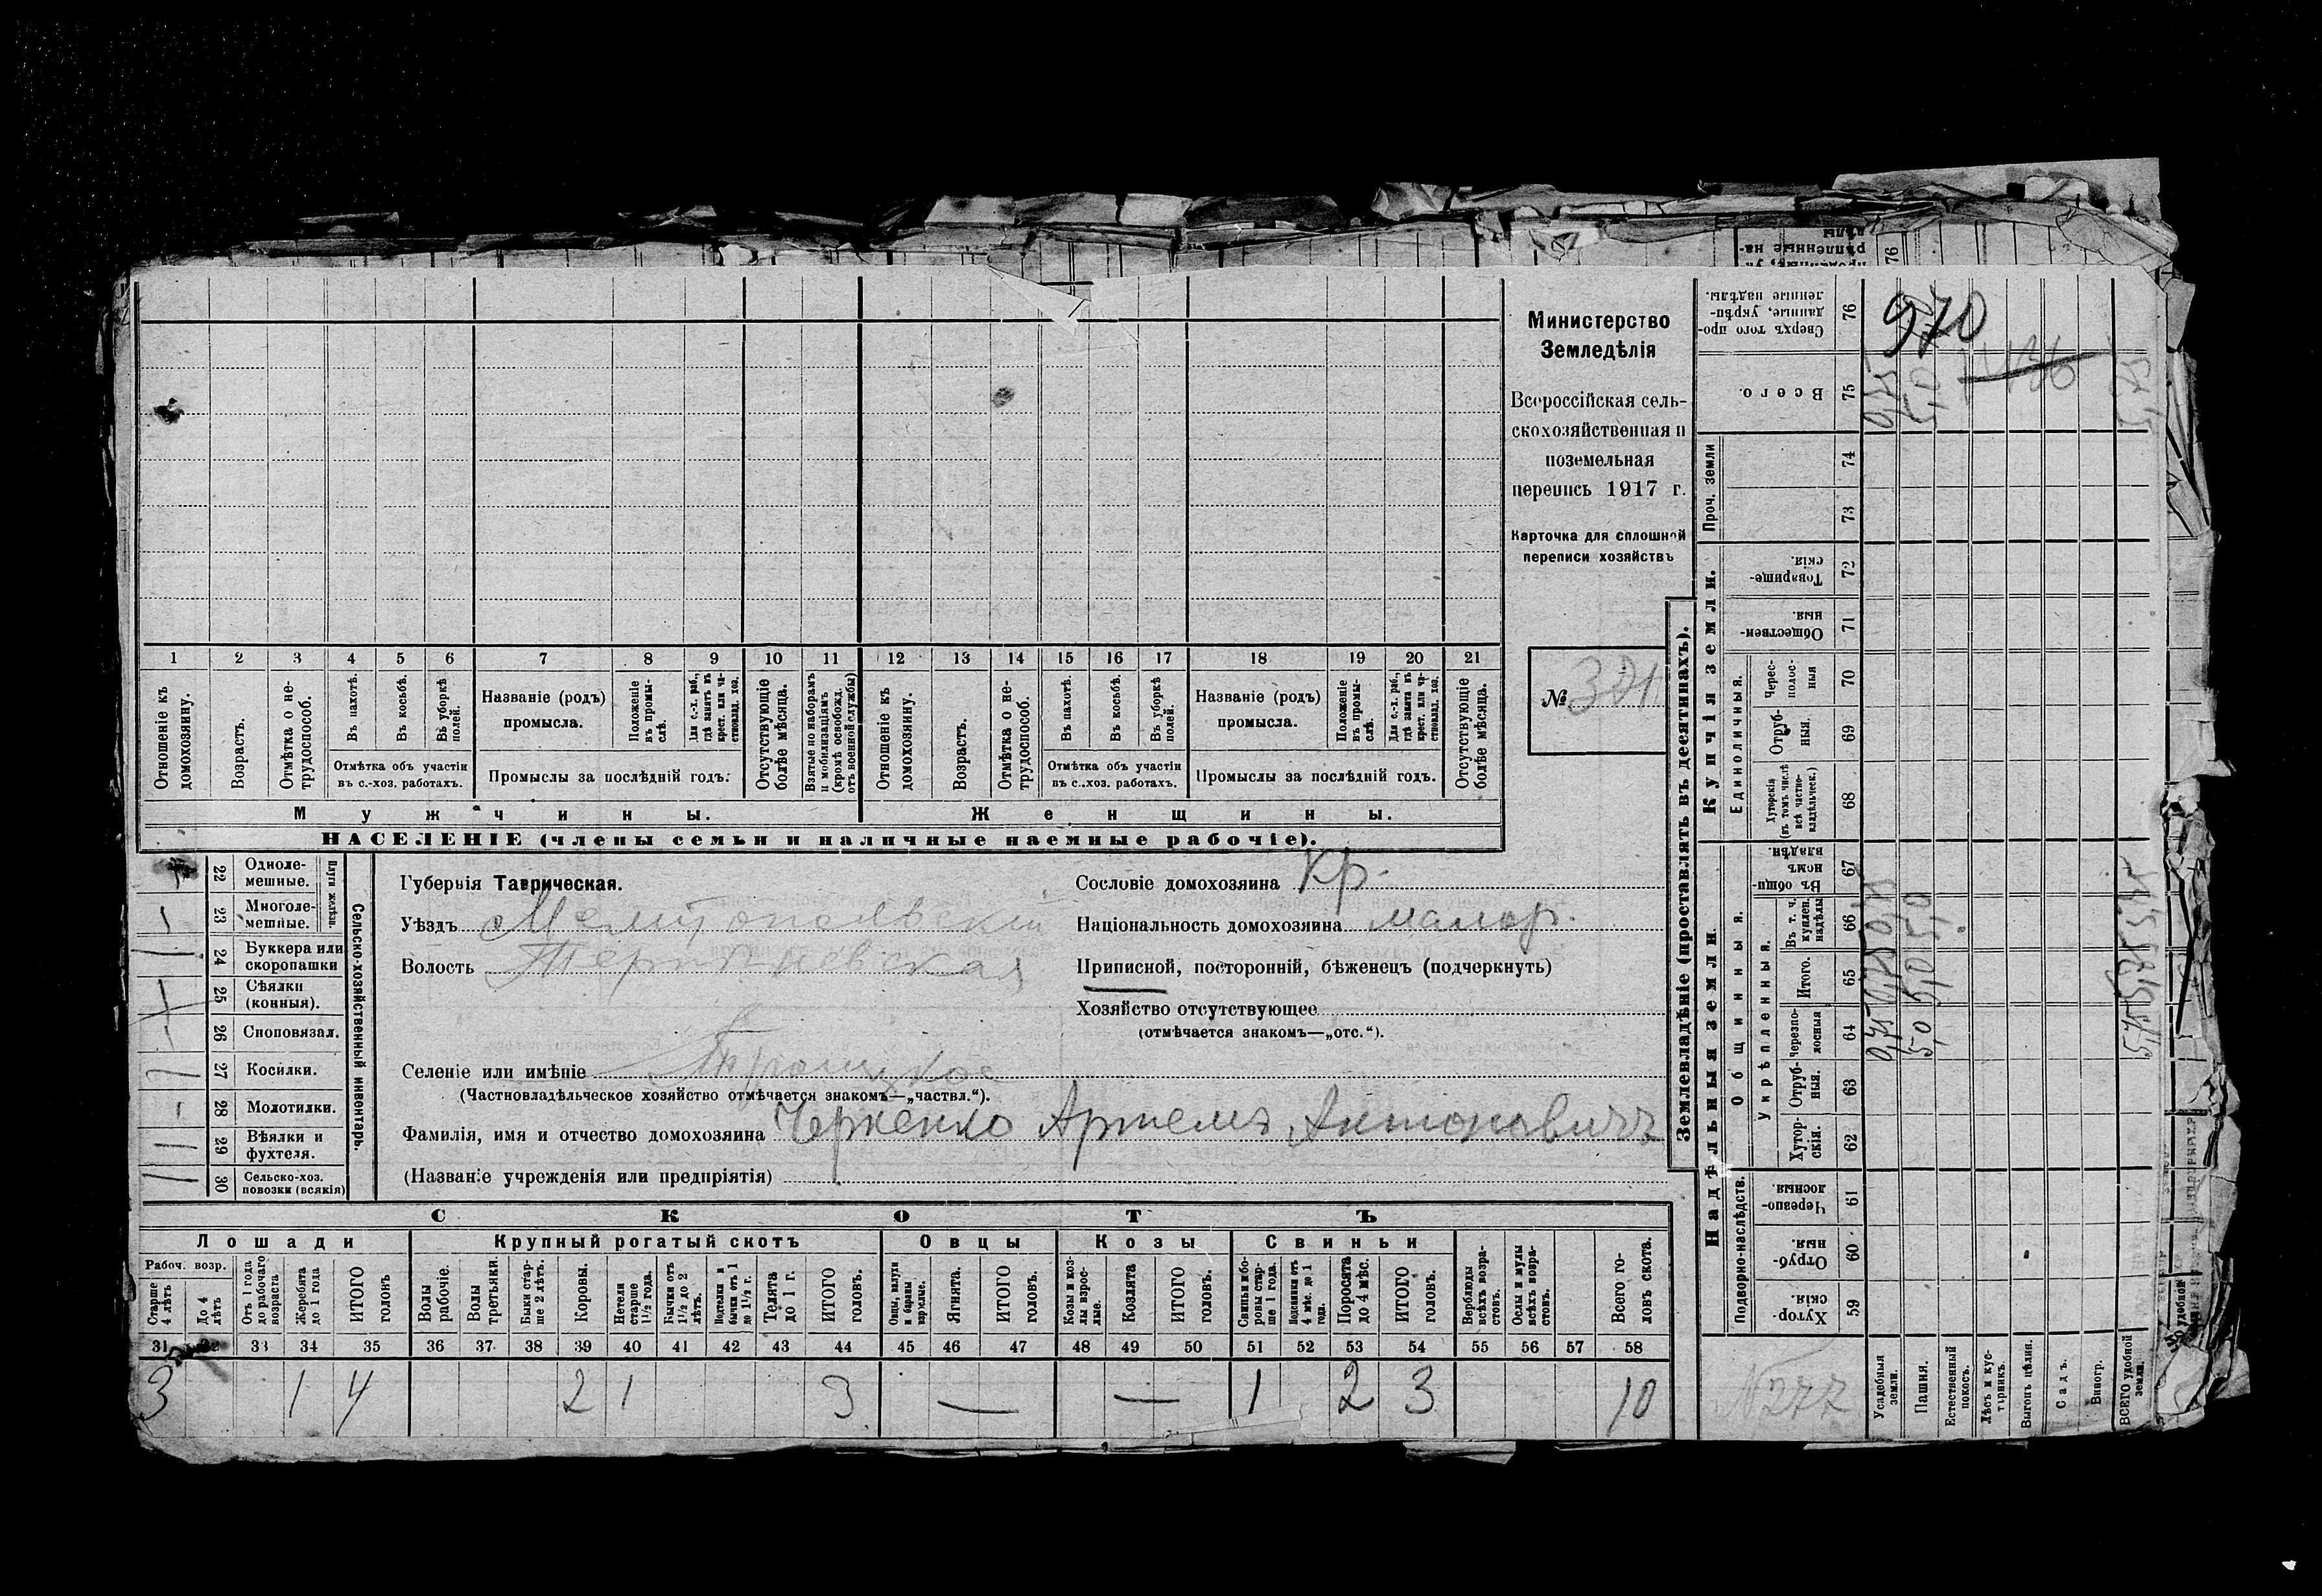 Министерство
Земледѣлія
Всероссійская сель-
скохозяйственная и
поземельная
перепись 1917 г.
Карточка для сплошной
переписи хозяйствъ
№
1 2 3 4 5 6 7 8 9 10 11 12 13 14 15 16 17 18 19 20 21
Отношеніе къ домохозяину.
Возрастъ.
Отмѣтка о не-трудоспособ.
Въ пахотѣ.
Въ косьбѣ.
Въ уборкѣ полей.
Отмѣтка объ участіи
въ с.-хоз. работахъ.
Названіе (родъ)
промысла.
Положеніе въ промы-слѣ.
Для с.-х. раб., гдѣ занятъ въ крест. или ча-стновлад. хоз.
Промыслы за послѣдній годъ:
Отсутствующіе болѣе мѣсяца.
Взятые по наборамъ и мобилизаціямъ (кромѣ освобожд. отъ военной службы)
Отношеніе къ домохозяину.
Возрастъ.
Отмѣтка о не-трудоспособ.
Въ пахотѣ.
Въ косьбѣ.
Въ уборкѣ полей.
Отмѣтка объ участіи
въ с.-хоз. работахъ.
Названіе (родъ)
промысла.
Положеніе въ промы-слѣ.
Для с.-х. раб., гдѣ занята въ крест. или ча-стновлад. хоз.
Промыслы за послѣдній годъ.
Отсутствующіе болѣе мѣсяца.
Мужчины. Женщины.
НАСЕЛЕНІЕ (члены семьи и наличные наемные рабочіе).
22 Одноле-мешные.
23 Многоле-мешные.
Плуги желѣзн.
24 Буккера или скоропашки
25 Сѣялки (конныя).
26 Сноповязал.
27 Косилки.
28 Молотилки.
29 Вѣялки и фухтеля.
30 Сельско-хоз. повозки (всякія)
Сельско-хозяйственный инвентарь.
Губернія Таврическая.
Уѣздъ Мелитопольскій
Волость
Селеніе или имѣніе Троицкое
(Частновладѣльческое хозяйство отмѣчается знакомъ—„частвл.“).
Фамилія, имя и отчество домохозяина Черненко Артемъ Антоновичъ
(Названіе учрежденія или предпріятія)
Сословіе домохозяина Кр.
Національность домохозяина малор.
Приписной, посторонній, бѣженецъ (подчеркнуть)
Хозяйство отсутствующее
(отмѣчается знакомъ—„отс.“).
СКОТЪ
Лошади Крупный рогатый скотъ Овцы Козы Свиньи
Рабоч. возр.
Старше 4 лѣтъ
До 4 лѣтъ
Отъ 1 года до рабочаго возраста
Жеребята до 1 года
ИТОГО головъ
Волы рабочіе.
Волы третьяки.
Быки стар-ше 2 лѣтъ.
Коровы.
Нетели старше 1½ года.
Бычки отъ 1½ до 2 лѣтъ.
Подтелки и бычки отъ 1 до 1½ г.
Телята до 1 г.
ИТОГО головъ.
Овцы, валухи и бараны взрослые.
Ягнята.
ИТОГО головъ.
Козы и коз-лы взрос-лые.
Козлята
ИТОГО головъ.
Свиньи и бо-ровы стар-ше 1 года.
Подсвинки отъ 4 мѣс. до 1 года.
Поросята до 4 мѣс.
ИТОГО головъ.
Верблюды всѣхъ возра-стовъ.
Ослы и мулы всѣхъ возра-стовъ.
Всего го-ловъ скота.
31 32 33 34 35 36 37 38 39 40 41 42 43 44 45 46 47 48 49 50 51 52 53 54 55 56 57 58
3 1 4 2 1 3 — — 1 2 3 10
Землевладѣніе (проставлять въ десятинахъ).
Надѣльныя земли. Купчія земли. Проч. земли
Подворно-наслѣдств.
Общинныя.
Укрѣпленныя.
Единоличныя.
59 Хутор-скія.
60 Отруб-ныя.
61 Черезпо-лосныя.
62 Хутор-скія.
63 Отруб-ныя.
64 Черезпо-лосныя
65 Итого.
66 Въ т. ч. куплен. надѣлы
67 Въ общин-номъ владѣн.
68 Хуторскія (въ томъ числѣ всѣ частно-владѣльческ.)
69 Отруб-ныя.
70 Черес-полос-ныя
71 Обществен-ныя
72 Товарище-скія.
73
74
75 Всего.
76 Сверхъ того про-данные, укрѣп-ленные надѣлы.
Усадебныя земли.
Пашня.
Естественный покосъ.
Лѣсъ и кус-тарникъ.
Выгонъ цѣлин.
Садъ.
Виногр.
ВСЕГО удобной земли.
970
№ 277
0,75
5,0 5,0 5,0 5,0
5,75